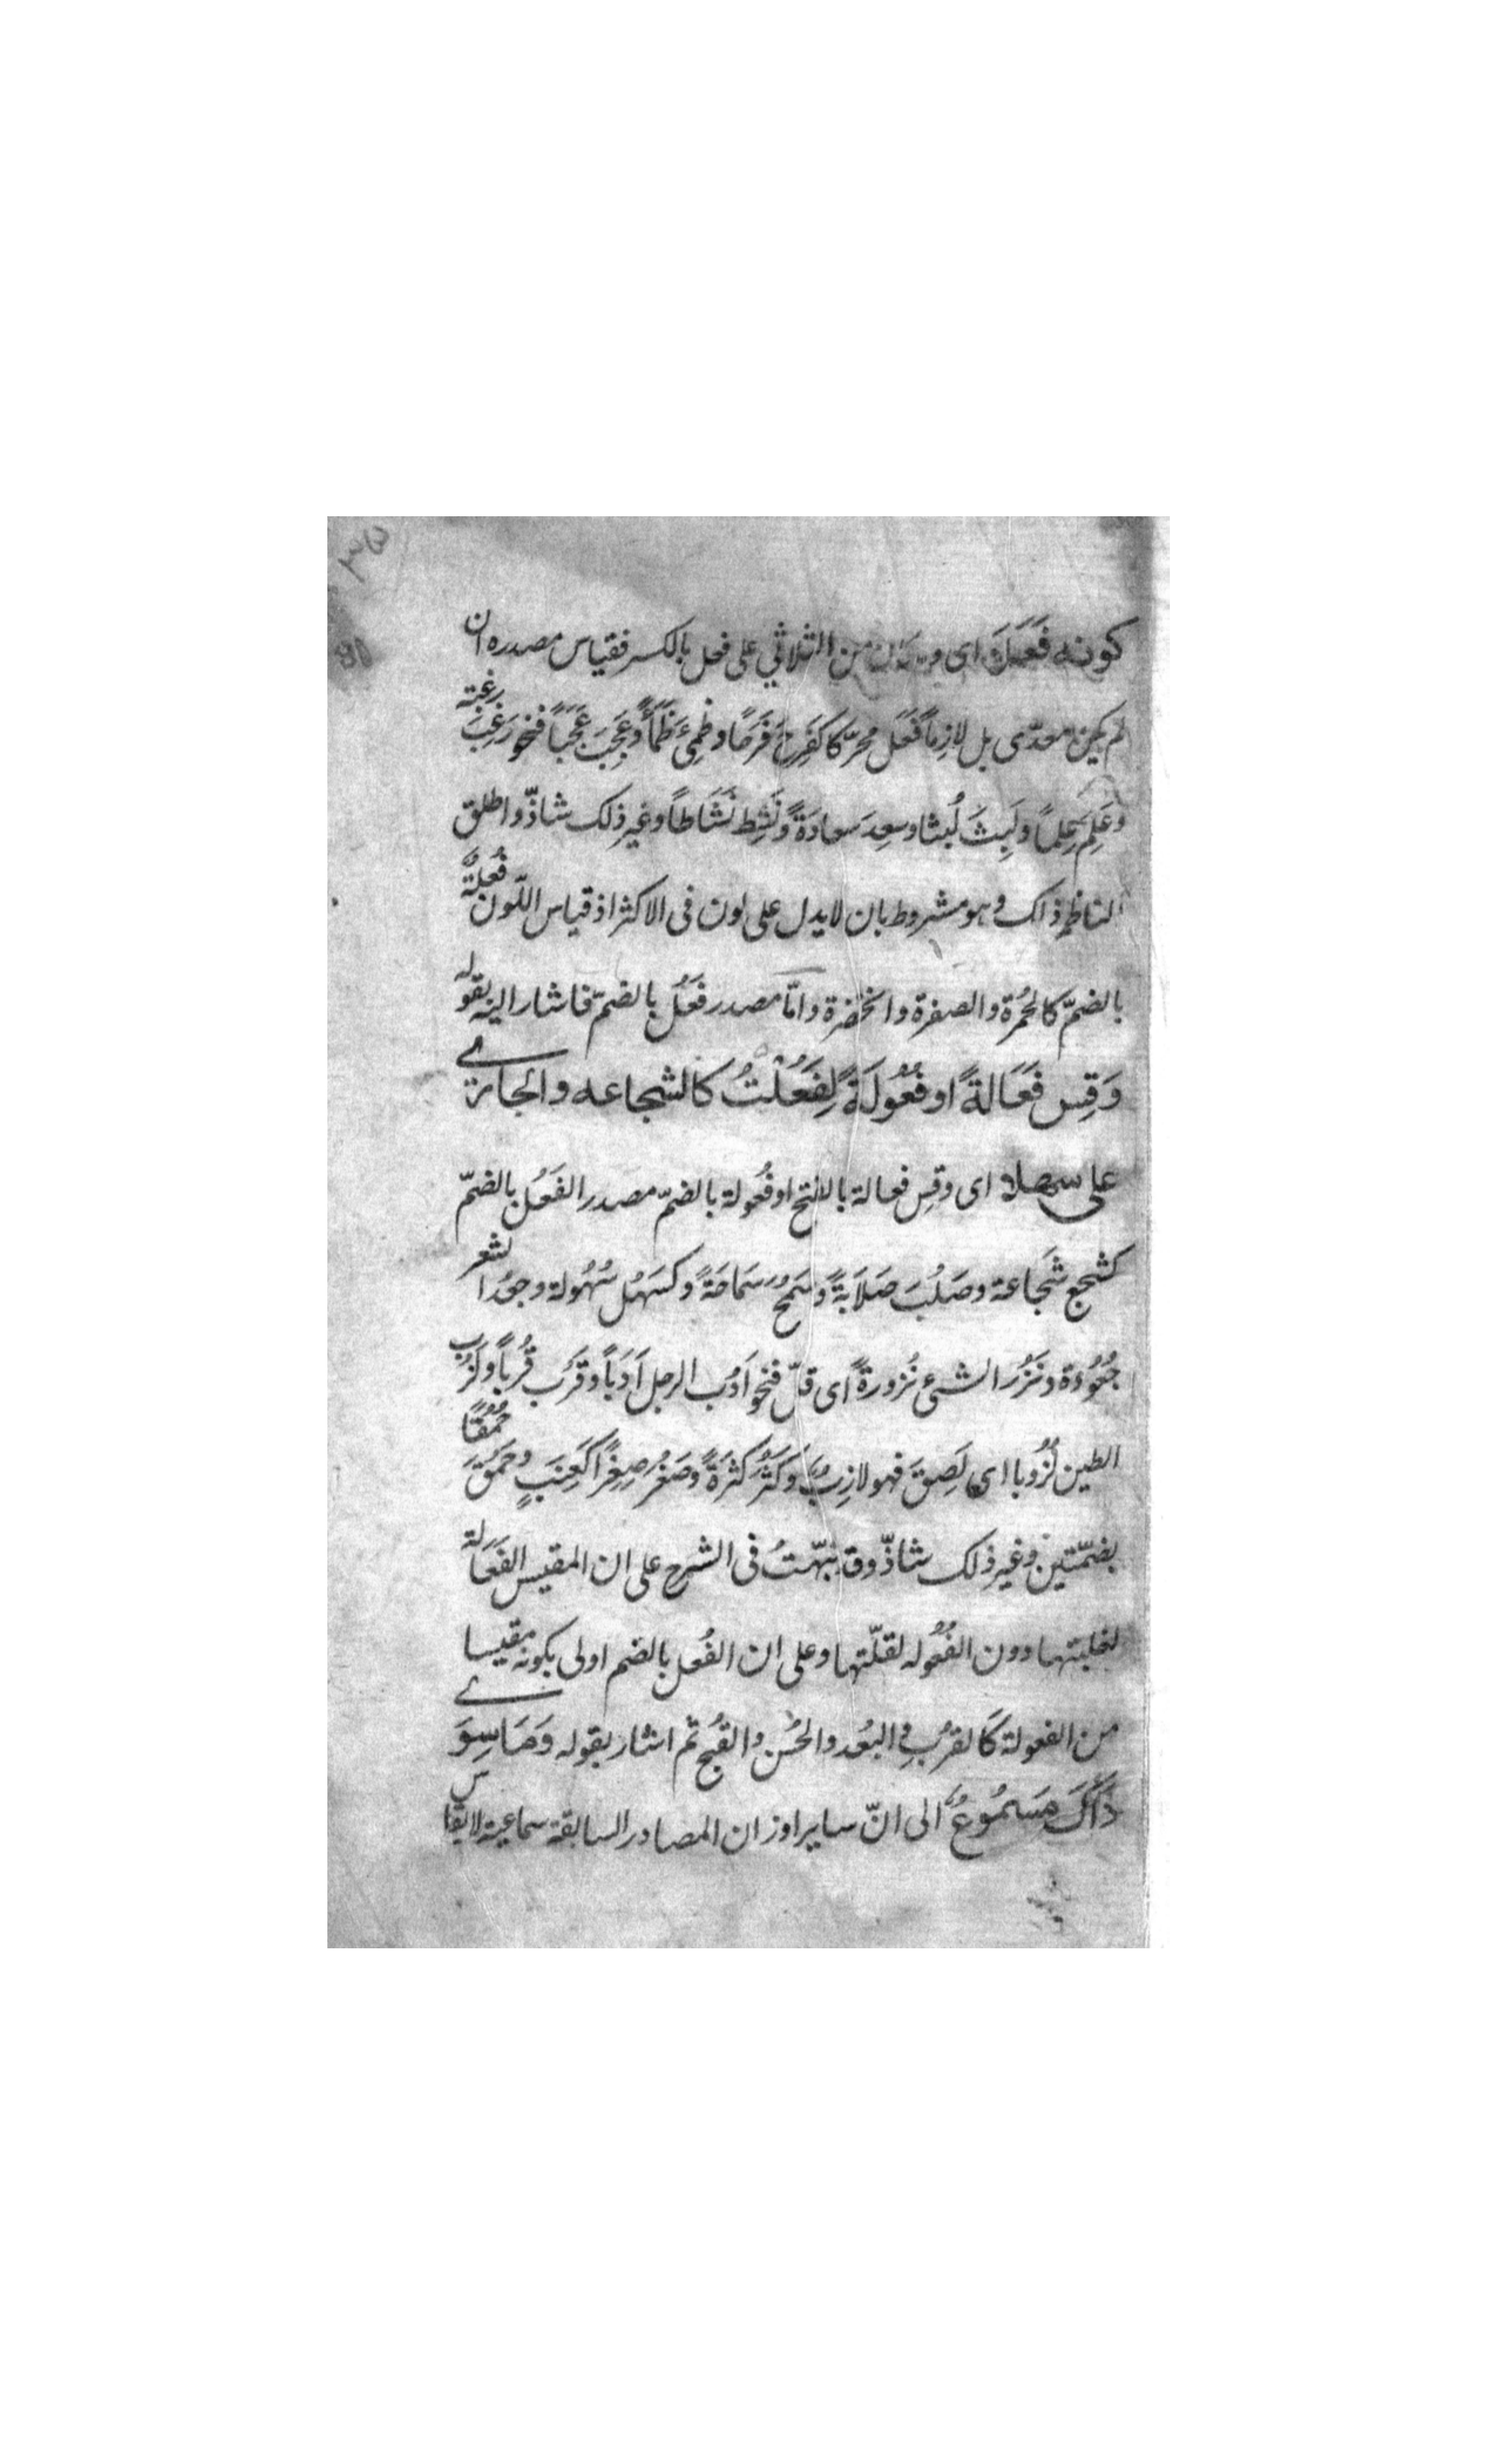 كونه فَعَلَا اى وما كان من الثلاثي على فعل بالكسر فقياس مصدره ان
لم يكن معدّى بل لازماً فَعَل محرّكا كَفَرِحَ فَرَحًا وظَمِئَ ظَمَأً وعَجِبَ عَجَباً فنحو رَغِبَ رغبة
وعَلِمَ عِلماً ولَبِثَ لُبثا وسعِدَ سعادَةً ونَشِط نَشَاطاً وغير ذلك شاذّ واطلق
الناظم ذلك وهو مشروط بان لا يدل على لون فى الاكثر اذ قياس اللّون فُعلةٌ
بالضمّ كالحُمرة والصفرة والخضرة وامّا مصدر فَعُل بالضمّ فاشار اليه بقوله
وَقِس فَعَالةً او فُعُولَةً لِفَعُلْتُ كالشجاعه والجارى
على سهلا اى وقِس فعالة بالفتح او فُعولة بالضمّ مصدر الفَعُل بالضمّ
كشجع شَجاعة وصَلُبَ صَلَابَةً وسَمُحَ سَمَاحَةً وكسَهُل سُهُولة وجعُد الشعر
جُعُودة ونَزُر الشئ نُزورةً اى قلّ فنحو اَدُب الرجل اَدَباً وقَرُب قُرباً ولَزُب
الطين لُزُوبا اى لَصِقَ فهو لازبٌ وكَثُر كَثرَةً وصَغُر صِغَراً كَعِنَبٍ وحَمُقَ حُمُقًا
بضمّتين وغير ذلك شاذّ وقد نبّهتُ فى الشرح على ان المقيس الفَعَالة
لغلبتها دون الفُعُوله لقلّتها وعلى ان الفُعل بالضم اولى بكونه مقيسا
من الفعولة كالقرُب والبُعد والحُسن والقُبح ثم اشار بقوله وَمَا سِوَى
ذَاكَ مَسمُوعٌ الى انّ ساير اوزان المصادر السابقة سماعية لا يقاس